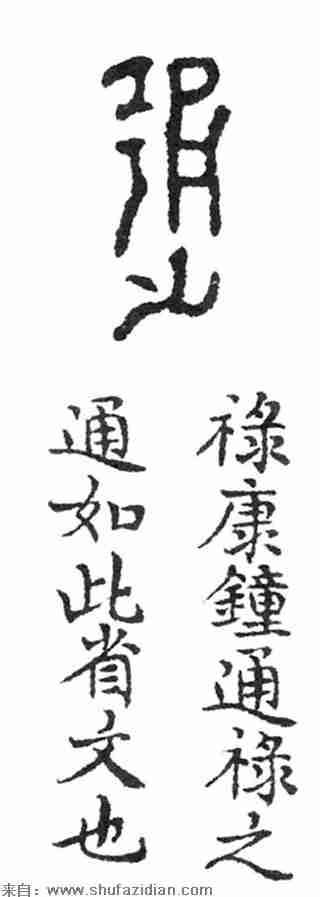 通
祿康鐘通祿之
通如此省文也
来自：www.shufazidian.com